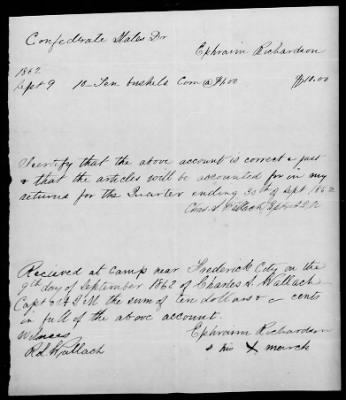 Confederate States Dr
Ephraim Richardson
1862
Sept 9 10 - Ten bushels Corn @ $1.00 $10.00
I certify that the above account is correct & just
& that the articles will be accounted for in my
returns for the Quarter ending 30th of Sept. 1862
Chas. A. Wallach Capt & A.Q.M
Recieved at Camp near Frederick City on the
9th day of September 1862 of Charles A. Wallach
Capt & A.Q.M the sum of ten dollars & cents
in full of the above account.
Witness Ephraim Richardson
R.L. Wallach his X march